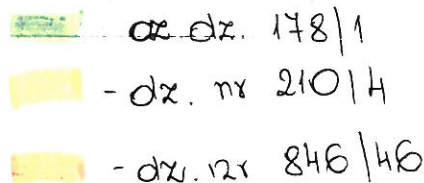 dz. 178/1
- dz. nr 210/4
- dz. nr 846/46